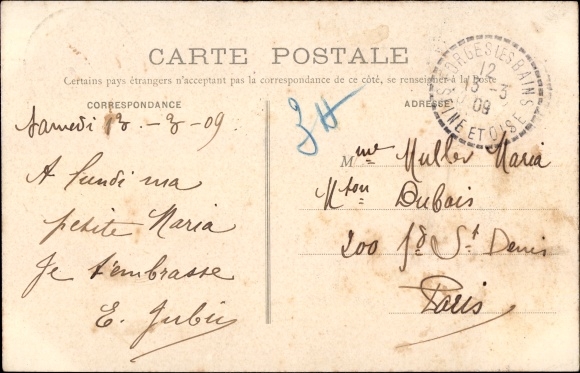 CARTE POSTALE
Certains pays étrangers n'acceptant pas la correspondance de ce côté, se renseigner à la Poste
CORRESPONDANCE
ADRESSE
FORGES LES BAINS
12
13 - 3
09
SEINE ET OISE
Samedi 13 - 3 - 09.
A lundi ma
petite Maria
Je t'embrasse
E.
Mme Muller Maria
Mton Dubois
200 fg St Denis
Paris